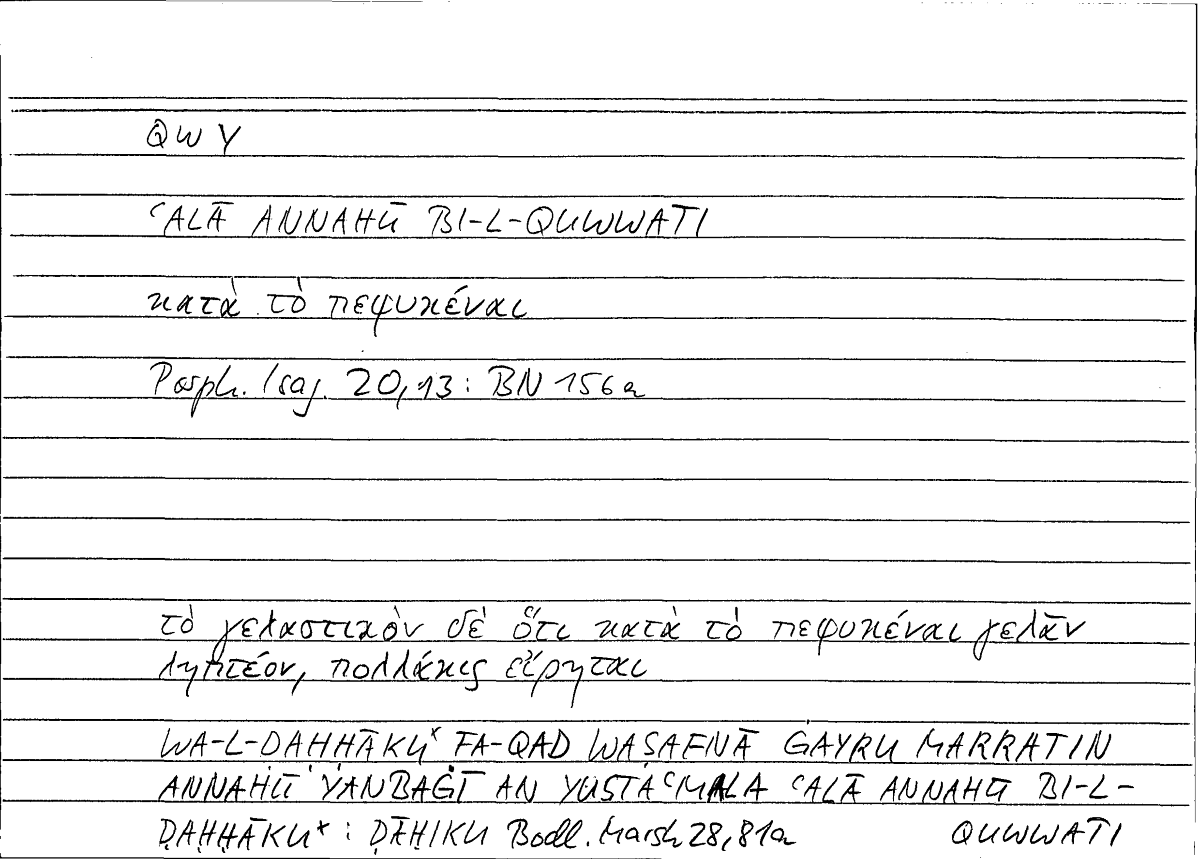 QWY
ʿALĀ ANNAHŪ BI-L-QUWWATI
κατὰ τὸ πεφυκέναι
Porph. Isag. 20,13: BN 156a
τὸ γελαστικὸν δὲ ὅτι κατὰ τὸ πεφυκέναι γελᾶν
ληπτέον, πολλάκις εἴρηται
WA-L-ḌAḤḤĀKUˣ FA-QAD WAṢAFNĀ ĠAYRU MARRATIN
ANNAHŪ YANBAĠĪ AN YUSTAʿMALA ʿALĀ ANNAHŪ BI-L-
QUWWATI
ḌAḤḤĀKUˣ : ḌĀḤIKU Bodl. Marsh 28,81a